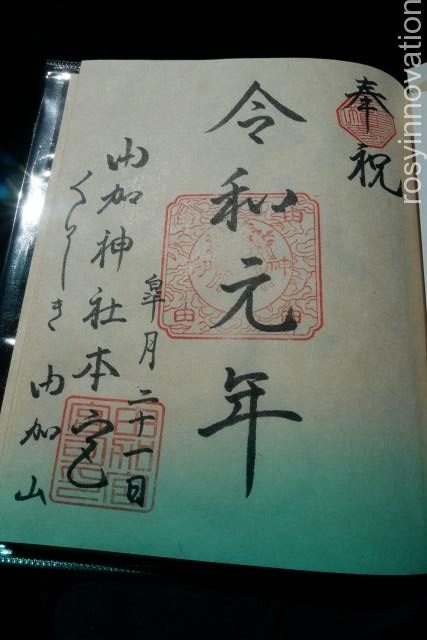 奉祝
令和元年
皐月二十一日
由加神社本宮
くらしき由加山
rosyinnovation